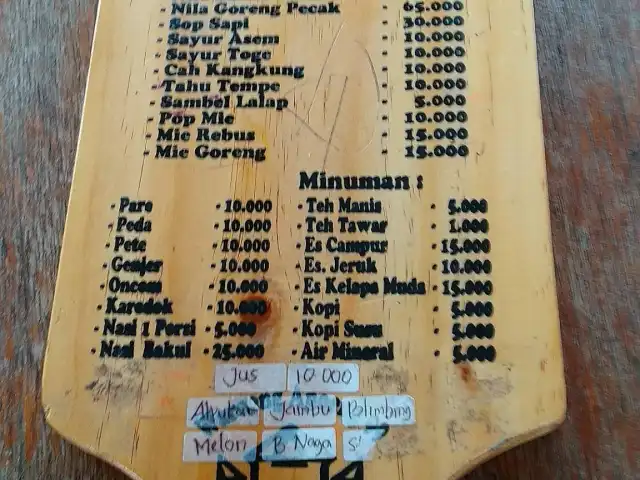 - Nila Goreng Pecak - 65.000
- Sop Sapi - 30.000
- Sayur Asem - 10.000
- Sayur Toge - 10.000
- Cah Kangkung - 10.000
- Tahu Tempe - 10.000
- Sambel Lalap - 5.000
- Pop Mie - 10.000
- Mie Rebus - 15.000
- Mie Goreng - 15.000
- Pare - 10.000
- Peda - 10.000
- Pete - 10.000
- Genjer - 10.000
- Oncom - 10.000
- Karedok - 10.000
- Nasi 1 Porsi - 5.000
- Nasi Bakul - 25.000
Minuman :
- Teh Manis - 5.000
- Teh Tawar - 1.000
- Es Campur - 15.000
- Es. Jeruk - 10.000
- Es Kelapa Muda - 15.000
- Kopi - 5.000
- Kopi Susu - 5.000
- Air Mineral - 5.000
Jus 10.000
Alpukat Jambu Belimbing
Melon B. Naga